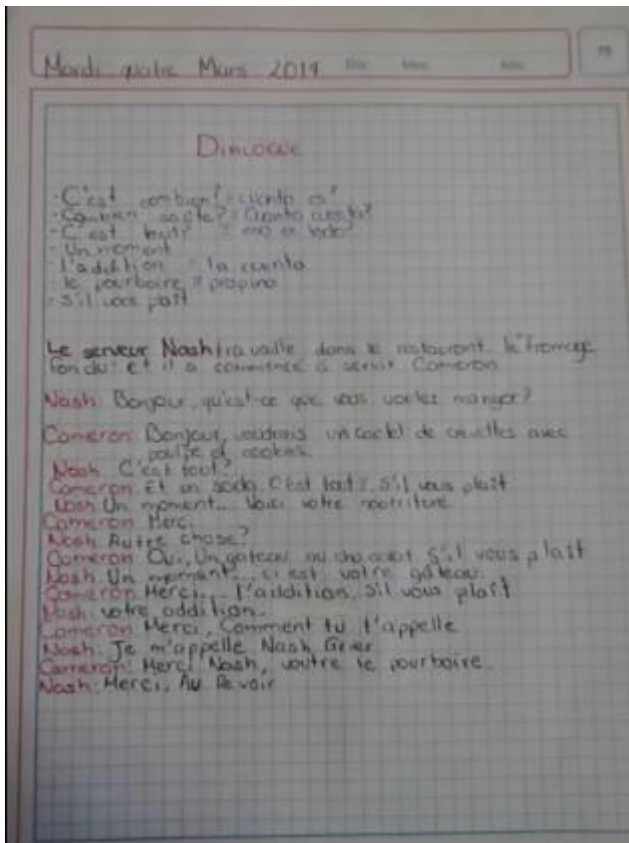 Mardi quatre Mars 2014
Dialogue
- C'est combien? = cuanto es?
- Combien coûte? = Cuanto cuesta?
- C'est tout? = eso es todo?
- Un moment
- l'addition = la cuenta
- le pourboire = propina
- S'il vous plaît
Le serveur Nash travaille dans le restaurant le "fromage
fondu" et il a commence a servir Cameron
Nash: Bonjour, qu'est-ce que vous voulez manger?
Cameron: Bonjour, voudrais un coctel de crevettes avec
poulpe et
Nash: C'est tout?
Cameron: Et un soda. C'est tout, S'il vous plaît
Nash: Un moment... Voici votre nourriture
Cameron: Merci
Nash: Autre chose?
Cameron: Oui, Un gateau au chocolat, S'il vous plaît
Nash: Un moment... ci est votre gateau.
Cameron: Merci... l'addition, S'il vous plaît
Nash: votre addition.
Cameron: Merci, Comment tu t'appelle
Nash: Je m'appelle Nash Grier
Cameron: Merci Nash, voutre le pourboire.
Nash: Merci, Au Revoir